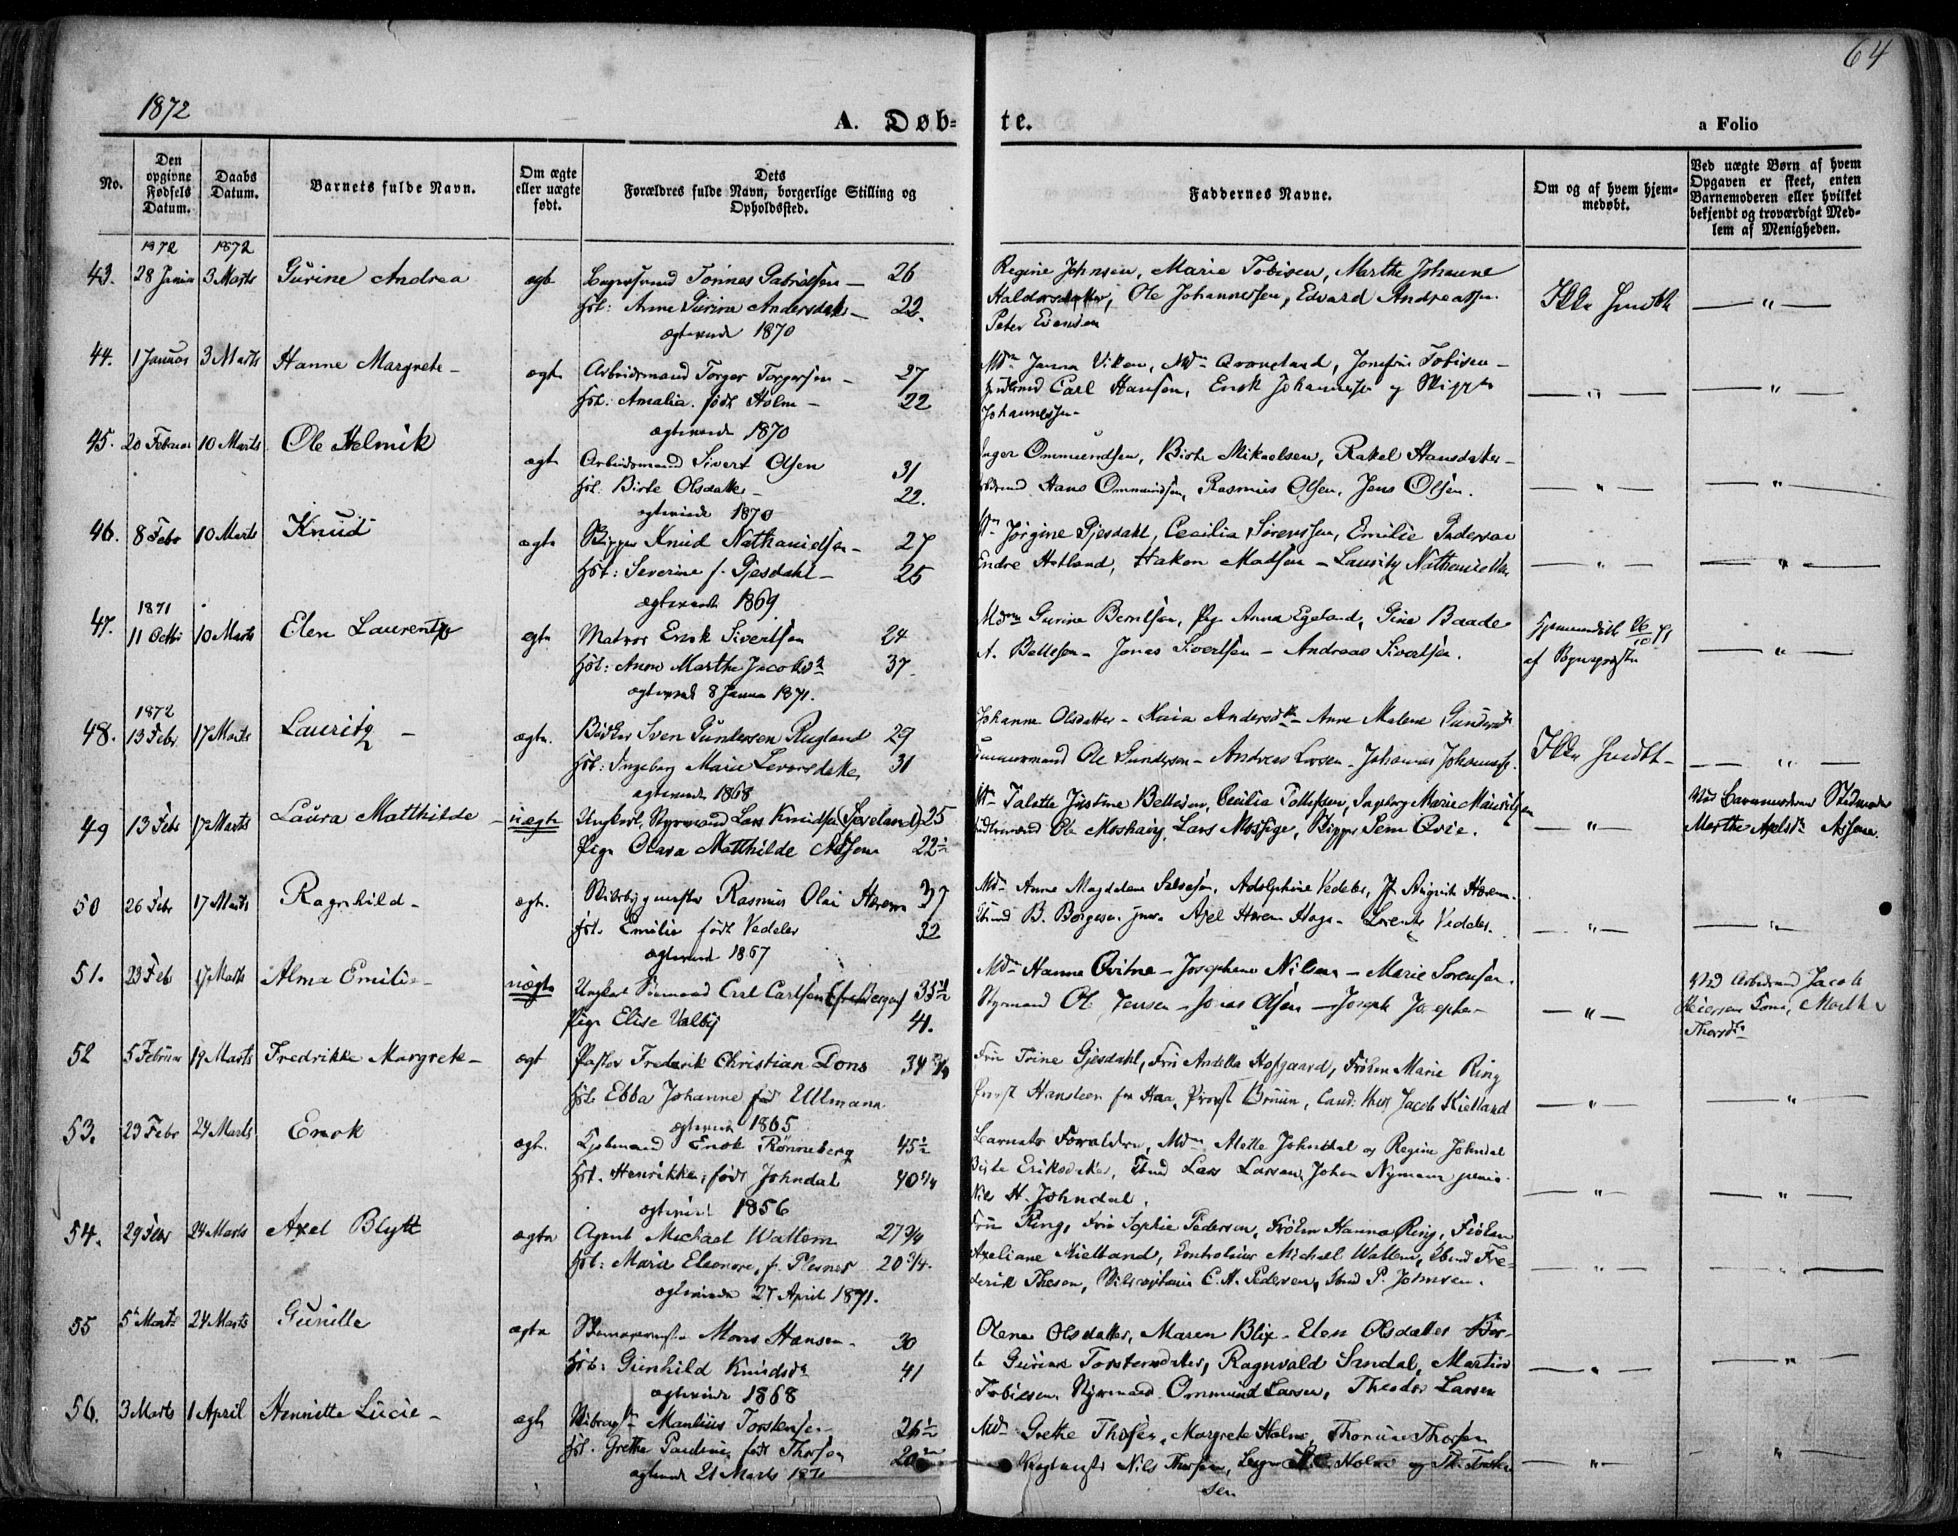 64
1872
A. Døb- te.
a Folio
No.
Den opgivne Fødsels Datum.
Daabs Datum.
Barnets fulde Navn.
Om ægte eller uægte født.
Dets Forældres fulde Navn, borgerlige Stilling og Opholdssted.
Faddernes Navne.
Om og af hvem hjemmedøbt.
Ved uægte Børn af hvem Opgaven er skeet, enten Barnemoderen eller hvilket bekjendt og troværdigt Medlem af Menigheden.
1872 1872
43. 28 Januar 3 Marts Gurine Andrea ægte Tønnes Gabrielsen 26
Hst: Anne Gurine Andersdatter 22.
ægteviede 1870
Regine Johnsen, Marie Tobisen, Marthe Johanne
Haldorsdatter, Ole Johannessen, Edvard Andreassen.
Peter Evensen
Ikke hmdbt — " —
44. 1 Januar 3 Marts Hanne Margrete ægte Arbeidsmand Torger Torgersen 27
Hst: Amalia født Holm 22
ægteviede 1870
Mdm Janna Viken, Mdm Josefine Tobisen
Carl Hansen, Enok Johannessen og Skipper
Johannessen
— " — — " —
45. 20 Februar 10 Marts Ole Helmik ægte Arbeidsmand Sivert Olsen 31
Hst. Birte Olsdatter 22.
ægteviede 1870
Inger Ommundsen, Birte Mikaelsen, Rakel Hansdatter
Hans Ommundsen, Rasmus Olsen, Jens Olsen.
— " — — " —
46. 8 Febr 10 Marts Knud ægte Skipper Knud Nathanielsen 27
Hst: Severine f. Gjesdahl 25
ægteviede 1869
Jørgine Gjesdahl, Cecilia Sørenssen, Emilie Pedersen
Endre Hetland, Hakon Madsen - Lauritz Nathanielsen
— " — — " —
1871
47. 11 Octbr 10 Marts Elen Laurentze ægte Matros Enok Sivertsen 24
Hst: Anne Marthe Jacobsdtr 37.
ægteviede 8 Januar 1871.
Mdm Gurine Berntsen, Pige Anna Egeland, Gine Baade
A. Bellesen - Jonas Sivertsen - Andreas Sivertsen.
Hjemmedøbt 26/10 71
af Byens
— " —
1872
48. 13 Febr 17 Marts Lauritz ægte. Bødker Sven Gundersen Rugland 29
Hst: Ingeborg Marie Levorsdatter 31
ægteviede 1868
Johanna Olsdatter - Maria Andersdtr - Anne Malene Gundersdtr
Tømmermand Ole Gundersen - Andreas Larsen - Johannes Johannessen.
Ikke hmdbt — " —
49 13 Febr 17 Marts Laura Matthilde uægte Ungkarl, Styrmand Lars Knudsen (Søeland) 25
Pige Clara Matthilde 22½
Talette Justine Bellesen, Cecilia Tollefsen, Ingeborg Marie Mauritzen
Ole Moshaug, Lars Mossige, Skipper Sem Qvie.
— " —
Ved Barnemoderens Stedmoder
Marthe Axelsdtr
50 26 Febr 17 Marts Ragnhild ægt. Skibsbygmester Rasmus Olai Haerem 37
Hst. Emilie født Vedeler 32
ægteviede 1867
Mdm Anne Magdalene Salvesen, Adolphine Vedeler, Augusta Haerem.
B. Børgesen junr. Axel Haerem Hage - Lorentz Vedeler.
— " — — " —
51. 23 Febr 17 Marts Alma Emilie uægte Ungkarl Sømand Carl Carlsen (fra Bergen) 35½
Pige Elise Valby 41.
Mdm Hanne Qvitne - Josephine Nilsen - Marie Sørensen.
Styrmand Ole Jensen - Jonas Olsen - Joseph Josephsen
— " —
Ved Arbdmand Jacob
Marthe
Thorsdtr
52 5 Februar 19 Marts Fredrikke Margrete ægt Pastor Frederik Christian Dons 34
Hst. Ebba Johanne født Ullmann
ægteviede 1865
Fru Trine Gjesdahl, Fru Ardella Hofgaard, Frøken Marie Ring
Provst Hansteen fra Haa, Provst Bruun, Cand: theol Jacob Kielland
— " — — " —
53. 23 Febr 24 Marts Enok ægt. Enok Rønneberg 45½
Hst. Henrikke, født Johndal 40¾
ægteviede 1856
Barnets Forældre, Mdm Alette Johndal og Regine Johndal
Birte Eriksdatter, Lars Larsen, Johan Nyman junior
Nils H. Johndal.
— " — — " —
54. 29 Febr 24 Marts Axel Blytt ægte Agent Michael Wattem 27¾
Hst: Marie Eleonore, f. Plesner 20¾.
ægteviede 27 April 1871.
Fru Ring, Fru Sophie Pedersen, Frøken Hanna Ring, Frøken
Axeliane Kielland, Kontrolleur Michael Wattem, Fre-
derik Thesen, Skibscaptain C. A. Pedersen, P. Johnsen.
— " — — " —
55 5 Marts 24 Marts Gunille ægte Skomagermester Mons Hansen 30
Hst: Gunhild Knudsdtr 41
ægteviede 1868
Olena Olsdatter, Maren Blix - Elen Olsdatter Ber-
te Gurine Torstensdatter, Ragnvald Sandal, Martin
Tobiesen Styrmand Ommund Larsen, Theodor Larsen
— " — — " —
56. 3 Marts 1 April Henriette Lucie ægte Mantius Torstensen 26½
Hst. Grethe Pauline født Thorsen 20
ægteviede 21 Marts 1871
Mdm Grethe Thorsen, Margrete Holm, Thorine Thorsen
Nils Thorsen, Holm og Th. Torsten-
sen
— " — — " —